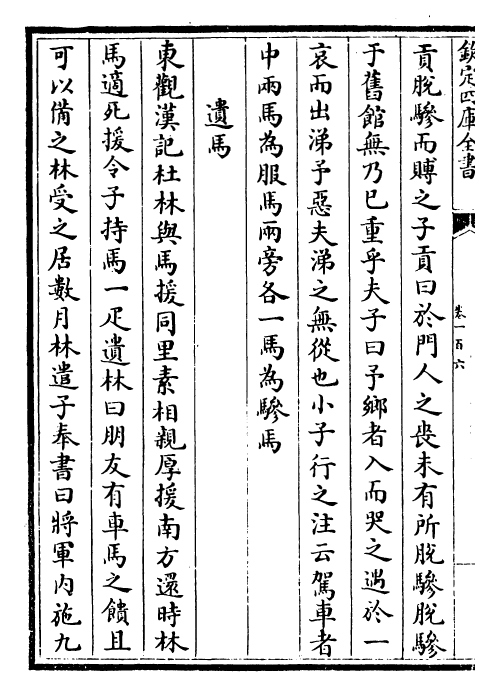 欽定四庫全書
卷一百六
貢脫驂而賻之子貢曰於門人之喪未有所脫驂脫驂
于舊館無乃已重乎夫子曰予鄉者入而哭之遇於一
哀而出涕予惡夫涕之無從也小子行之注云駕車者
中兩馬為服馬兩旁各一馬為驂馬
遺馬
東觀漢記杜林與馬援同里素相親厚援南方還時林
馬適死援令子持馬一疋遺林曰朋友有車馬之饋且
可以備之林受之居數月林遣子奉書曰將軍內施九